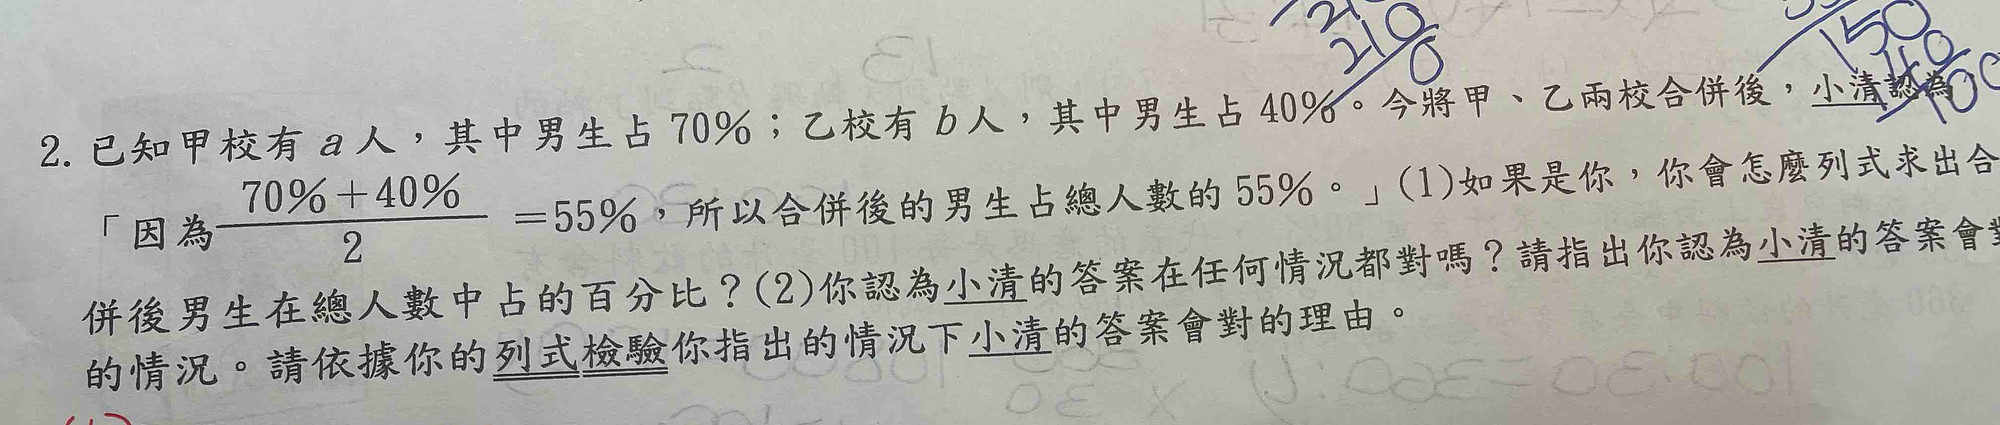 210
210
0
150
40
100
2. 已知甲校有 a 人，其中男生占 70%；乙校有 b 人，其中男生占 40%。今將甲、乙兩校合併後，小清認為
「因為 70%+40% / 2 =55%，所以合併後的男生占總人數的 55%。」(1)如果是你，你會怎麼列式求出合
併後男生在總人數中占的百分比？(2)你認為小清的答案在任何情況都對嗎？請指出你認為小清的答案會
的情況。請依據你的列式檢驗你指出的情況下小清的答案會對的理由。